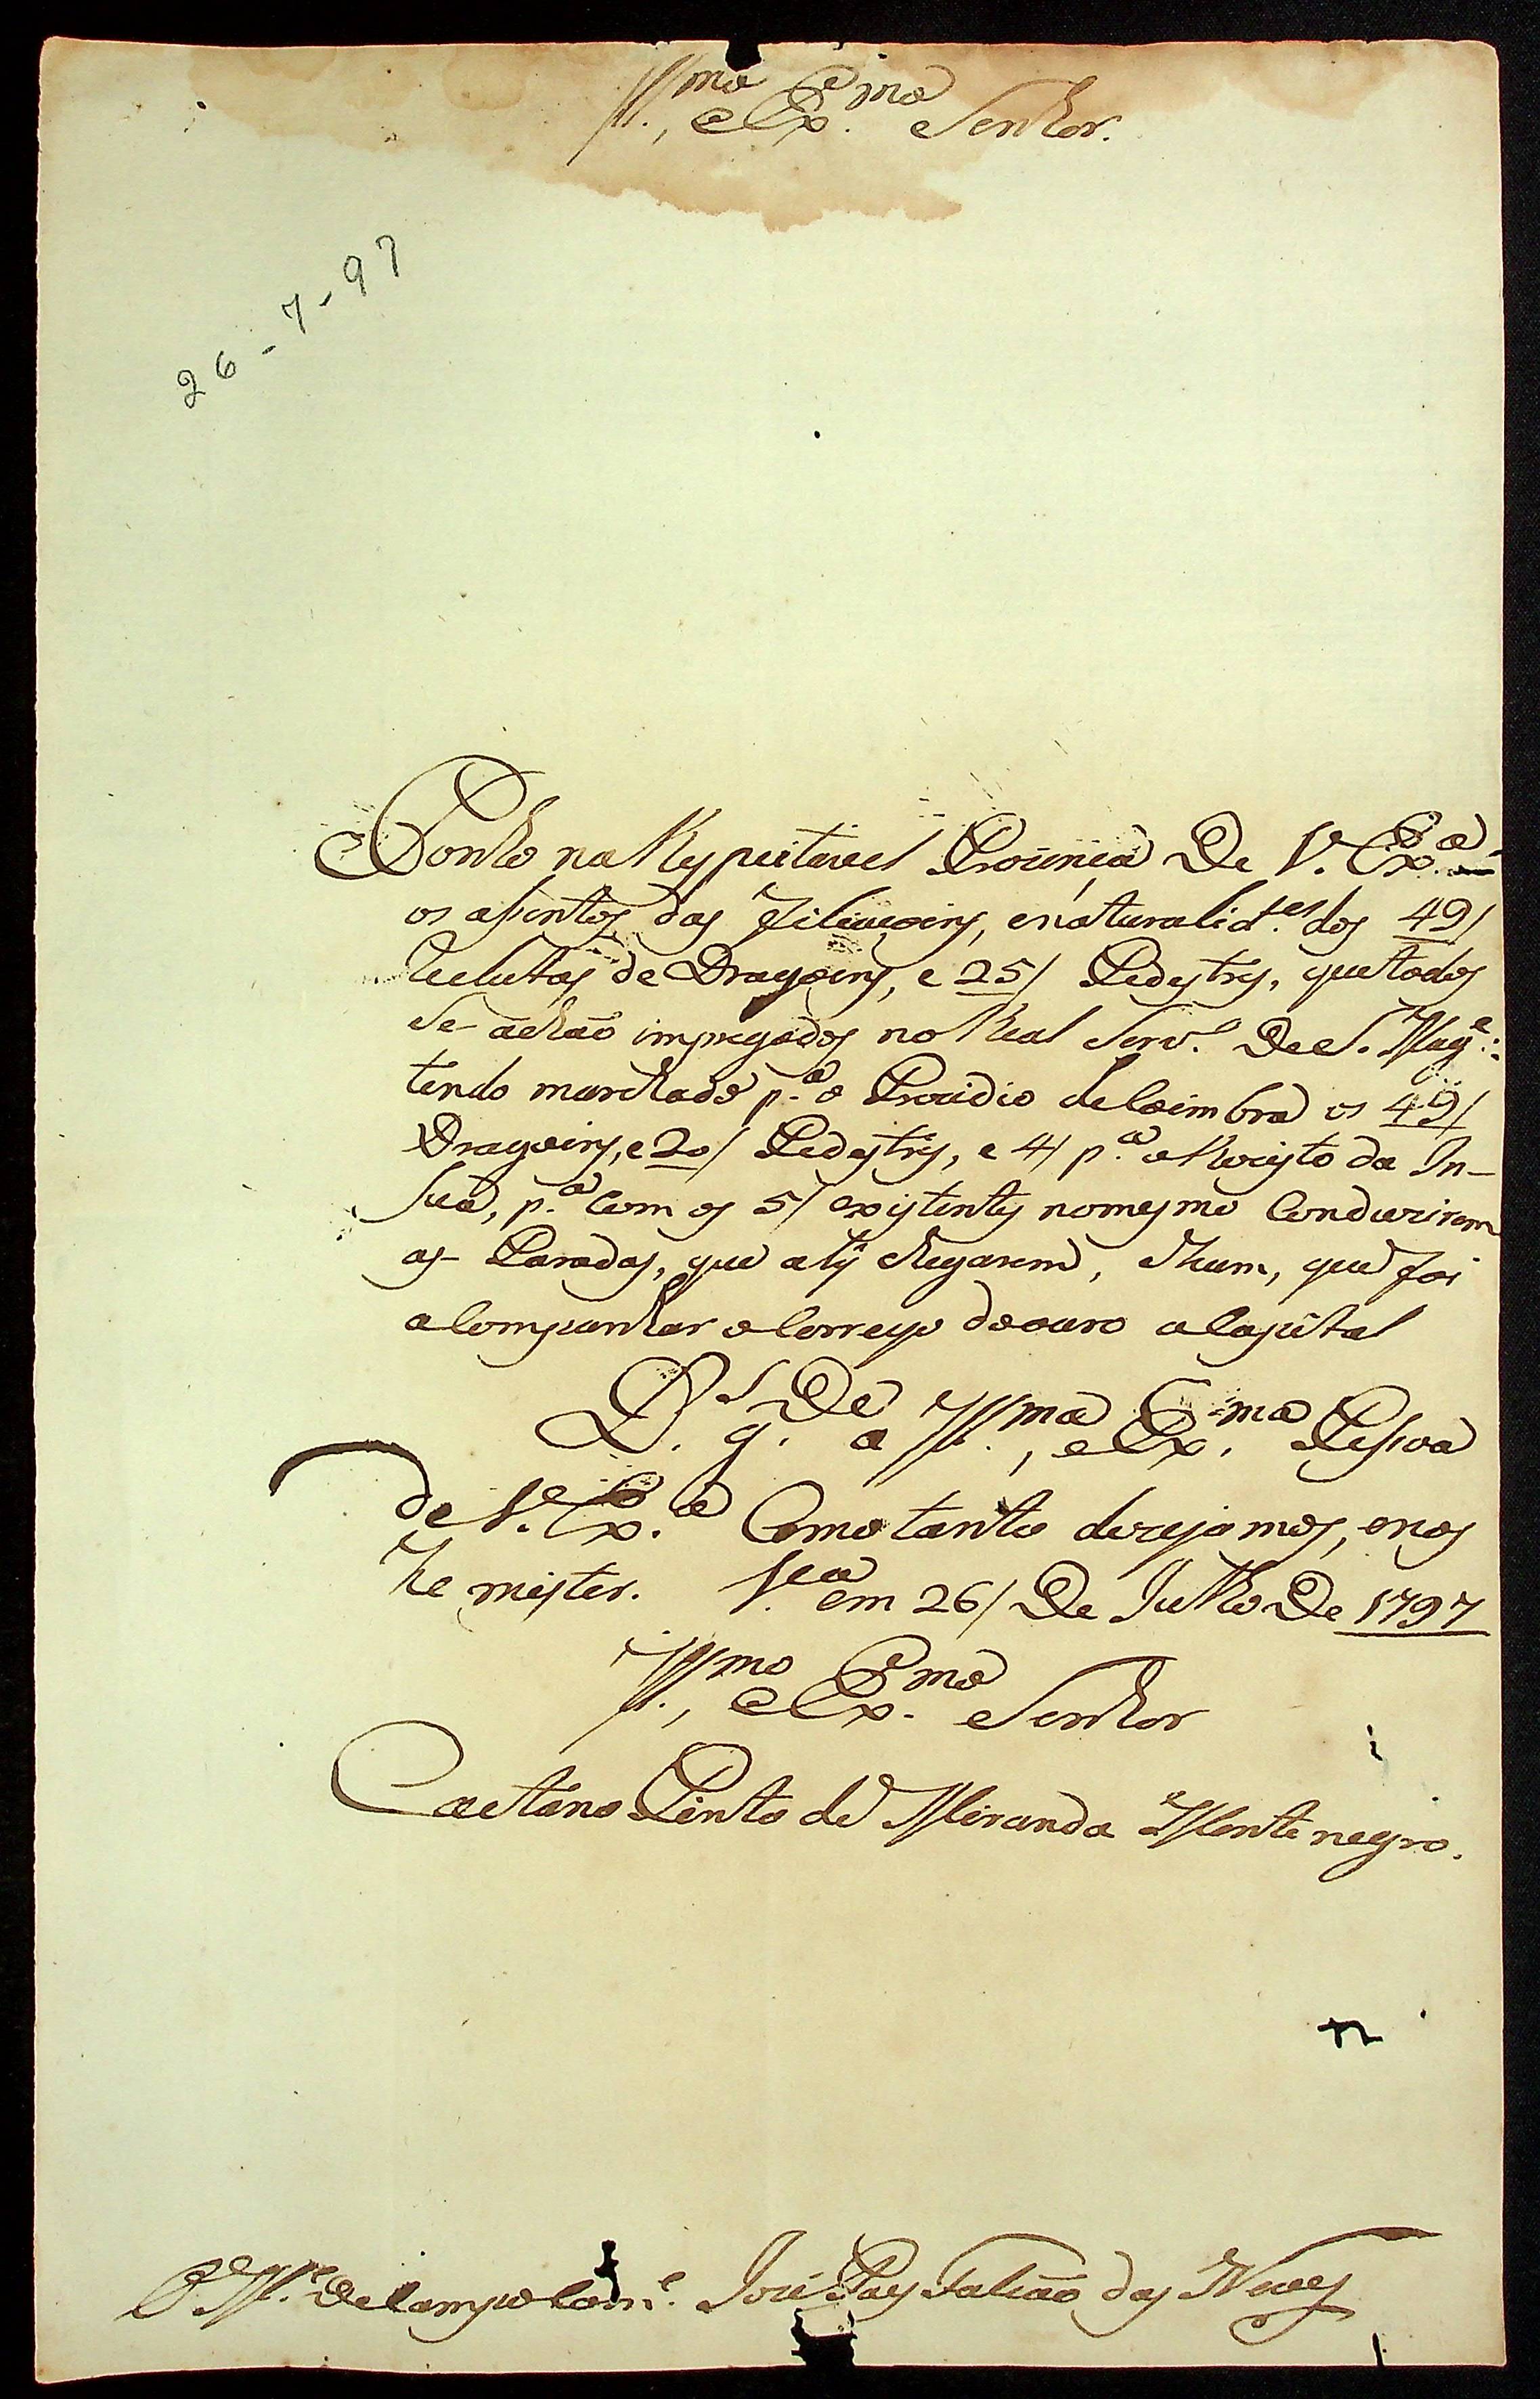 Ill.mo, e Ex.mo Senhor.
26-7-97
Ponho na Respeitavel Prezença De V. Ex.a
os asentos das Filiaçoins, enaturalid.es dos 49/
Reclutas de Dragoins, e 25/ Pedestres, que todos
Se achaõ impregados no Real Serv.o De S. Mag.e:
tendo marchado p.a o Prezidio de Coimbra os 49/
Dragoins, e 20/ Pedestres, e 4/ p.a o Registo da In-
sua, p.a Com os 5/ existentes no mesmo Conduzirem
as Paradas, que aly chegarem, e hum, que foi
a Companhar o Correyo do ouro a Capital
D.s g.De a Ill.ma, e Ex.ma Pesoa
de V. Ex.a Como tanto dezejamos, enos
he mister. V.a em 26/ De Julho De 1797
Ill.mo, e Ex.mo Senhor
Caetano Pinto de Miranda Montenegro.
O M.e De Campo Com.e José Paes Falcaõ das Neves